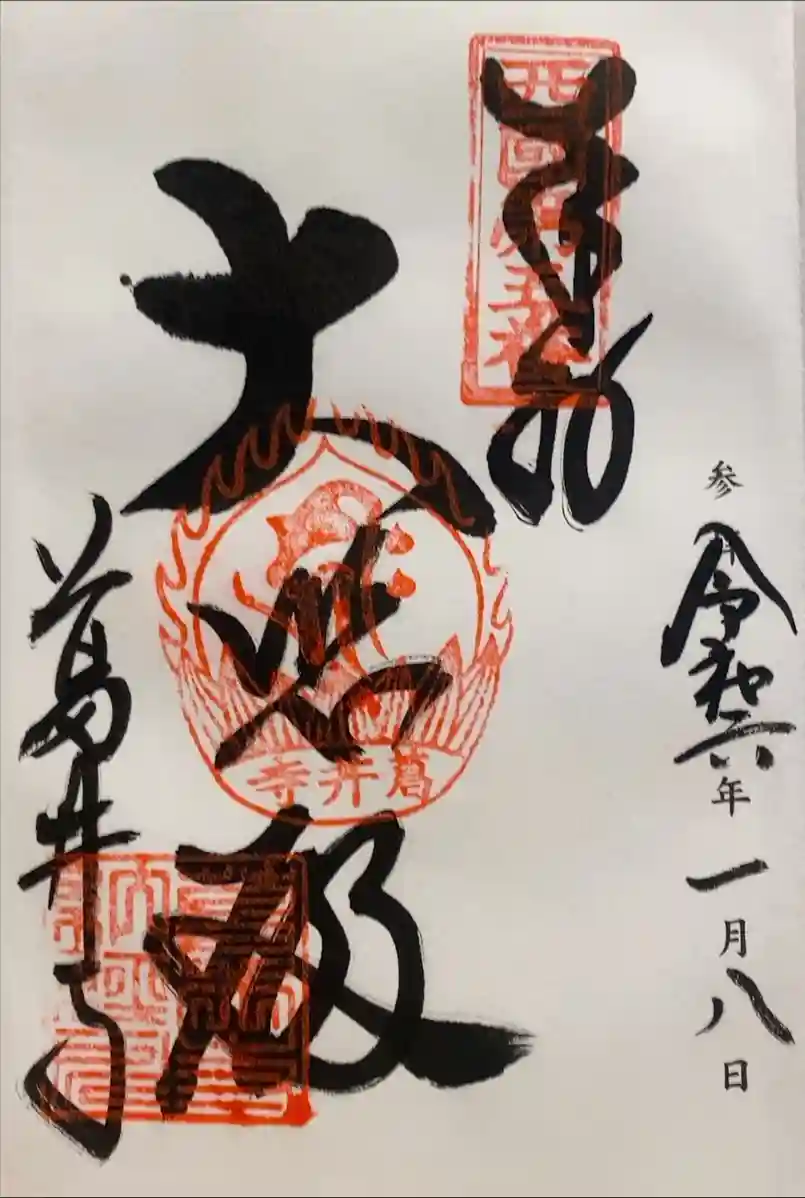 参拝 令和六年一月八日
奉拝
西国第五番
大悲殿
葛井寺
葛井寺